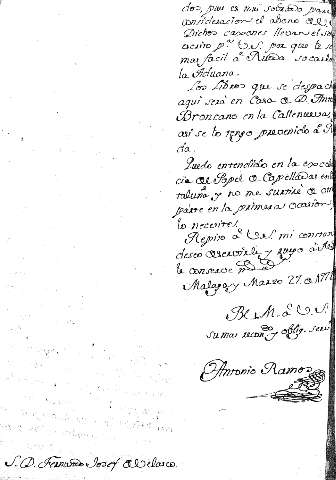 dos, pues es mui sobrado para
consideracion el abono de
Dichos caxones llevan el so
escrito p.ª V.S. por que le se
mas facil á Rueda sacarlo
la Aduana.
Los Libros que se despach
aqui será en Casa de D. Anto
Broncano en la Callenueva,
asi se lo tengo prevenido á R
da.
Quedo entendido en la exce
cia de Papel de Capelladas en
taluña y no me surtiré de o
parte en la primera ocasion
lo necesite.
Repito á V.S. mi constan
deseo de servirle y ruego á
le conserve
Malaga y Marzo 27 de 177
BLM. á V.S.
su mas recon.do y oblig. serv
Antonio Ramos
S. D. Fernando Josef de Velasco.